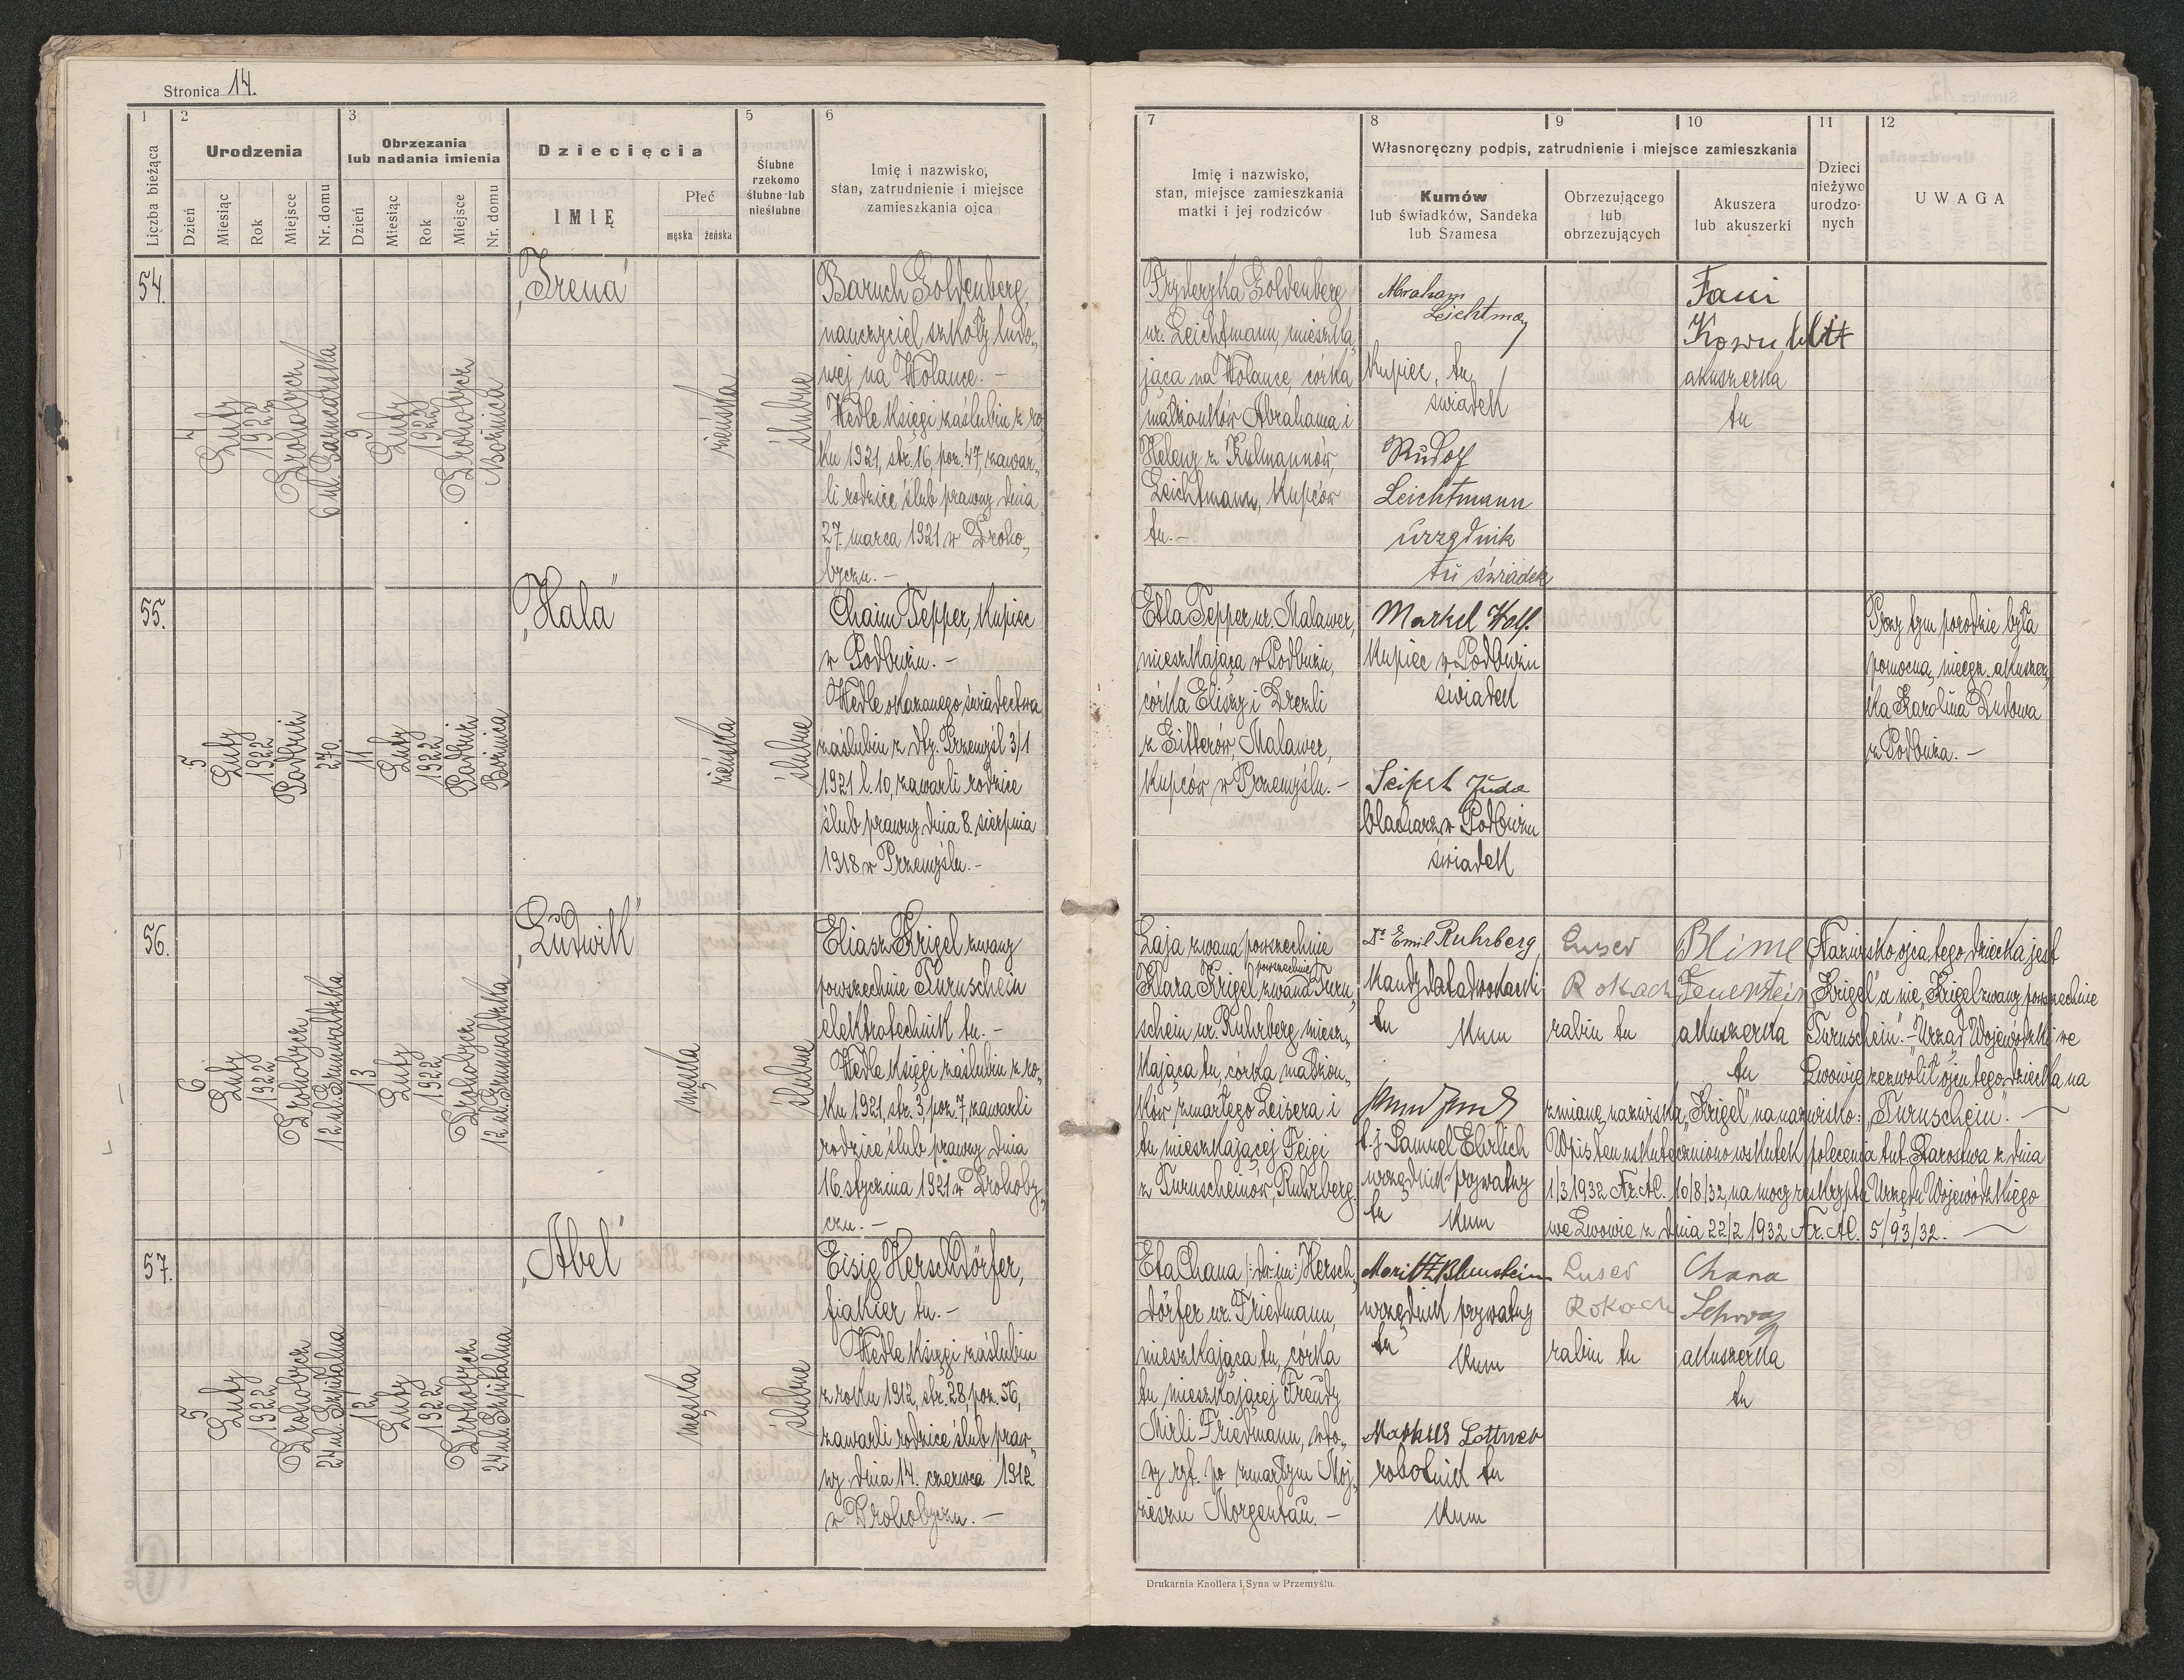 Stronica 14.
1 2 3 5 6
Liczba bieżąca
Urodzenia
Obrzezania
lub nadania imienia
Dziecięcia
Ślubne
rzekomo
ślubne lub
nieślubne
Imię i nazwisko,
stan, zatrudnienie i miejsce
zamieszkania ojca
Dzień Miesiąc Rok Miejsce Nr. domu
Dzień Miesiąc Rok Miejsce Nr. domu
IMIĘ
Płeć
męska żeńska
7 8 9 10 11 12
Imię i nazwisko,
stan, miejsce zamieszkania
matki i jej rodziców
Własnoręczny podpis, zatrudnienie i miejsce zamieszkania
Kumów
lub świadków, Sandeka
lub Szamesa
Obrzezującego
lub
obrzezujących
Akuszera
lub akuszerki
Dzieci
nieżywo
urodzo-
nych
UWAGA
54.
Luty
1922
Drohobycz
6 ul. Garncarska
9
Luty
1922
Drohobycz
Bożnica
„Irena"
żeńska
ślubne
Baruch Goldenberg,
nauczyciel szkoły ludo„
wej na Wolance. –
Wedle księgi zaślubin z ro„
ku 1921, str. 16, poz. 47, zawar„
li rodzice ślub prawny dnia
27. marca 1921 w Droho„
byczu. –
Fryderyka Goldenberg
ur. Leichtmann, mieszka„
jąca na Wolance, córka
małżonków Abrahama i
Heleny z Kulmannów
Leichtmann, kupców
tu. –
Abraham
Leichtman
kupiec, tu
świadek
Rudolf
Leichtmann
urzędnik
tu świadek
Fani
akuszerka
tu
55.
5
Luty
1922
Podbuż
270.
11
Luty
1922
Podbuż
Bożnica
„Hala"
żeńska
ślubne
Chaim Tepper, kupiec
w Podbużu. –
Wedle okazanego świadectwa
zaślubin z dty. Przemyśl 3/1
1921 l. 10, zawarli rodzice
ślub prawny dnia 8. sierpnia
1918 w Przemyślu. –
Etla Tepper ur. Malawer,
mieszkająca w Podbużu,
córka Eliszy i Drezli
z Malawer,
kupców w Przemyślu. –
Markel Wolf
kupiec w Podbużu
świadek
Seifert Juda
blacharz w Podbużu
świadek
Przy tym porodzie była
pomocną nieegz. akuszer„
ka Karolina Dudowa
z Podbuża. –
56.
6
Luty
1922
Drohobycz
12 ul. Grunwaldzka
13
Luty
1922
Drohobycz
12 ul. Grunwaldzka
„Ludwik"
męska
ślubne
Eliasz Krigel zwany
powszechnie Turnschein
elektrotechnik tu. –
Wedle księgi zaślubin z ro„
ku 1921, str. 3, poz. 7, zawarli
rodzice ślub prawny dnia
16 stycznia 1921 w Drohoby„
czu. –
Laja zwana powszechnie
Klara Krigel zwana powszechnie Turn„
schein ur. Ruhrberg miesz„
kająca tu, córka małżon„
ków zmarłego Leisera i
tu mieszkającej Feigi
z Turnscheinów, Ruhrberg.
Dr Emil Ruhrberg
kandydat adwokacki
tu kum
t. j. Samuel Ehrlich
urzędnik prywatny
tu kum
Luser
Rokach
rabin tu
Blime
Feuerstein
akuszerka
tu
„Nazwisko ojca tego dziecka jest
„Krigel" a nie „Krigel zwany powszechnie
Turnschein". – Urząd Wojewódzki we
Lwowie zezwolił ojcu tego dziecka na
zmianę nazwiska „Krigel" na nazwisko: „Turnschein". –
Wpis ten uskuteczniono wskutek polecenia tut. Starostwa z dnia
1/3 1932 Nr. Al. 10/8/32, na mocy reskryptu Urzędu Wojewódzkiego
we Lwowie z dnia 22/2 1932 Nr. Al. 5/93/32. –
57.
5
Luty
1922
Drohobycz
24 ul. Szpitalna
12
Luty
1922
Drohobycz
24 ul. Szpitalna
„Abel"
męska
ślubne
Eisig Herschdörfer,
fiakier tu. –
Wedle księgi zaślubin
z roku 1912, str. 28, poz. 56,
zawarli rodzice ślub praw„
ny dnia 14. czerwca 1912
w Drohobyczu. –
Eta Chana /:dw. im:/ Hersch„
dörfer ur. Friedmann,
mieszkająca tu, córka
tu mieszkającej Freudy
Mirli Friedmann, wdo„
wy ryt. po zmarłym Moj„
żeszu Morgentau. –
Moritz Blumstein
urzędnik prywatny
tu kum
Markus Lottner
robotnik tu
kum
Luser
Rokach
rabin tu
Chana
akuszerka
tu
Drukarnia Knollera i Syna w Przemyślu.